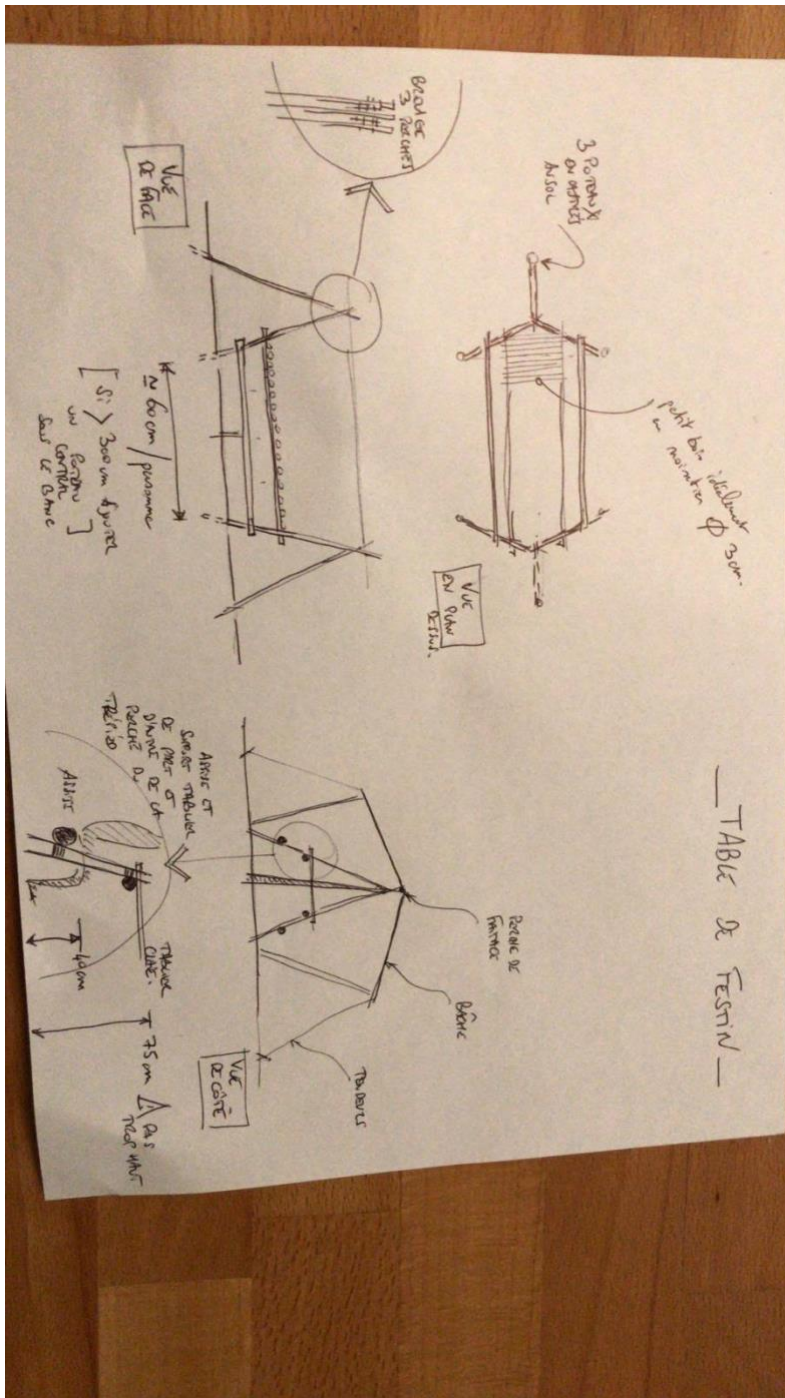 _ TABLE DE FESTIN _
3 POTEAUX
AU SOL
petit bois idéalement
ϕ 3cm.
VUE
EN PLAN
DESSUS.
BRELAGE
3 PERCHES
VUE
DE FACE
≈ 60cm / personne
[ Si > 300 cm ajouter
UN POTEAU
CENTRAL
SOUS LE BANC ]
PERCHE DE
FAITAGE
BÂCHE
TENDEURS
VUE
DE CÔTÉ
ASSISE ET
SUPPORT TABLIER
DE PART ET
D'AUTRE DE LA
PERCHE DU
TRÉPIED
ASSISE
TABLIER
40cm
75cm ⚠ PAS
TROP HAUT